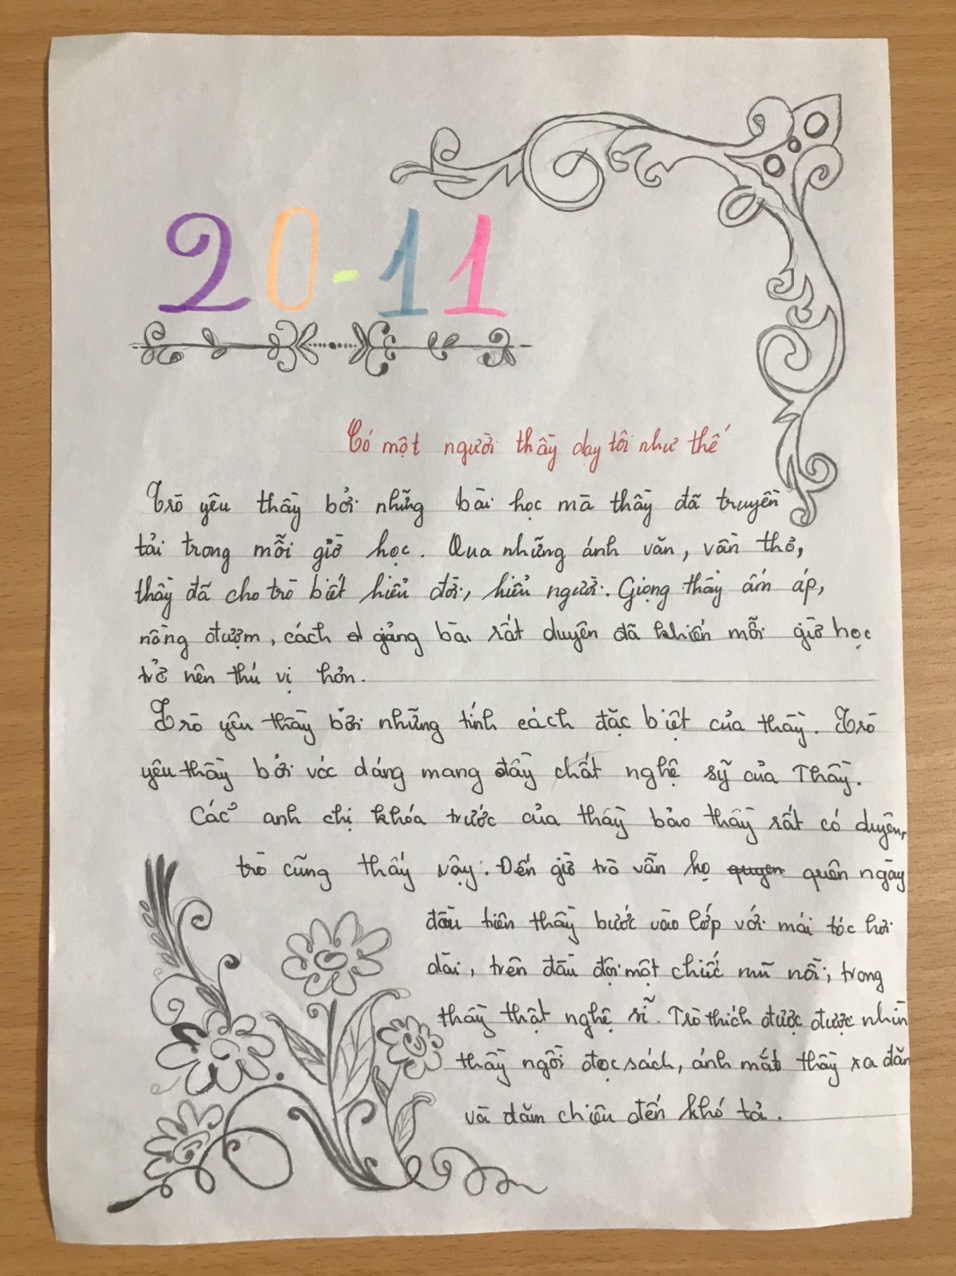 20-11
Có một người thầy dạy tôi như thế
Trò yêu thầy bởi những bài học mà thầy đã truyền
tải trong mỗi giờ học. Qua những ánh văn, vần thơ,
thầy đã cho trò biết hiểu đời, hiểu người. Giọng thầy ấm áp,
nồng đượm, cách giảng bài rất duyên đã khiến mỗi giờ học
trở nên thú vị hơn.
Trò yêu thầy bởi những tính cách đặc biệt của thầy. Trò
yêu thầy bởi vóc dáng mang đầy chất nghệ sỹ của Thầy.
Các anh chị khóa trước của thầy bảo thầy rất có duyên,
trò cũng thấy vậy. Đến giờ trò vẫn họ quên ngày
đầu tiên thầy bước vào lớp với mái tóc hơi
dài, trên đầu đội một chiếc mũ nồi, trong
thầy thật nghệ sĩ. Trò thích được được nhìn
thầy ngồi đọc sách, ánh mắt thầy xa dăn
và dăm chiêu đến khó tả.